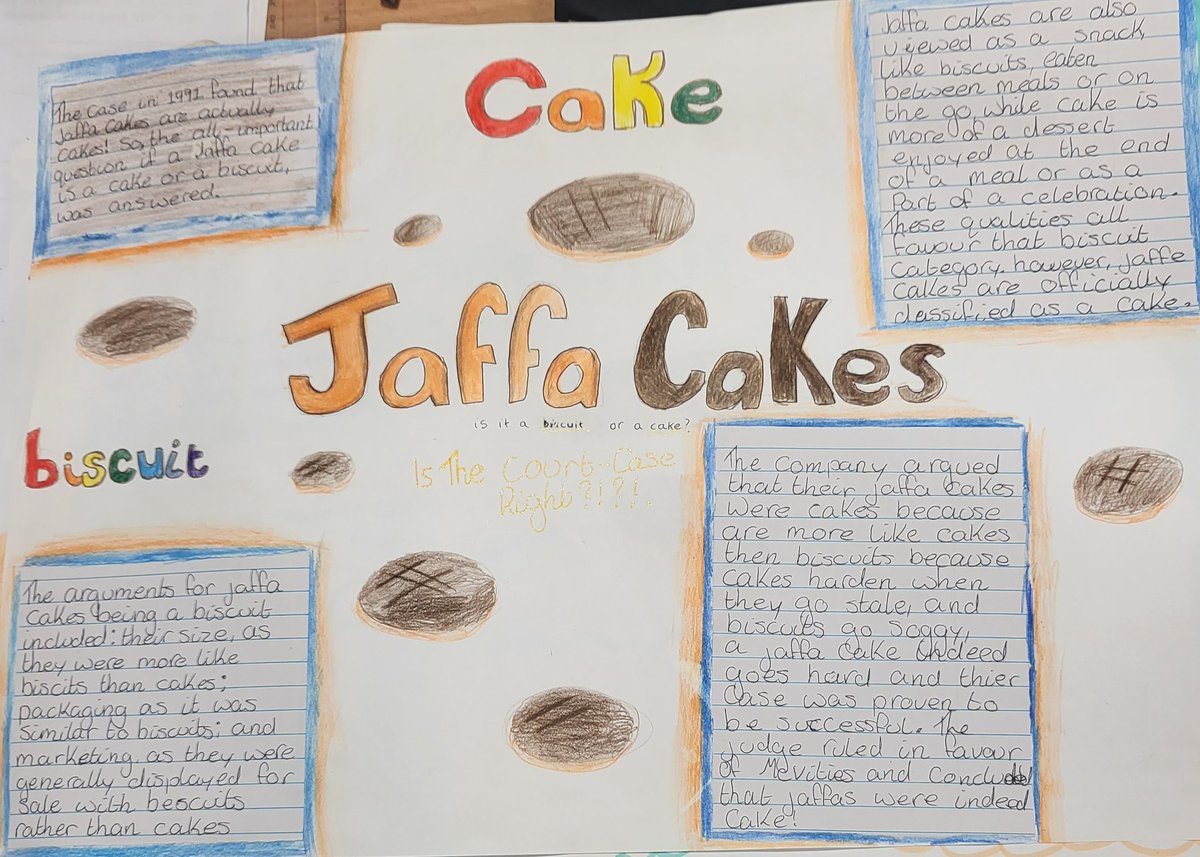 Cake
The case in 1991 found that
Jaffa cakes are actually
cakes! So, the all-important
question if a Jaffa cake
is a cake or a biscuit,
was answered.
Jaffa cakes are also
viewed as a snack
like biscuits, eaten
between meals or on
the go, while cake is
more of a dessert
enjoyed at the end
of a meal or as a
Part of a celebration.
These qualities all
favour that biscuit
category. however, jaffe
cakes are officially
classified as a cake.
Jaffa Cakes
is it a biscuit or a cake?
biscuit
Is The Court-Case
Right?!?!.
The arguments for jaffa
cakes being a biscuit
included: their size, as
they were more like
biscits than cakes;
packaging as it was
similar to biscuits; and
marketing as they were
generally displayed for
sale with bescuits
rather than cakes
The company argued
that their jaffa cakes
were cakes because
are more like cakes
then biscuits because
cakes harden when
they go stale, and
biscuits go soggy,
a jaffa cake indeed
goes hard and thier
case was proven to
be successful. The
judge ruled in favour
of Mcvities and
that jaffas were indeed
cake!